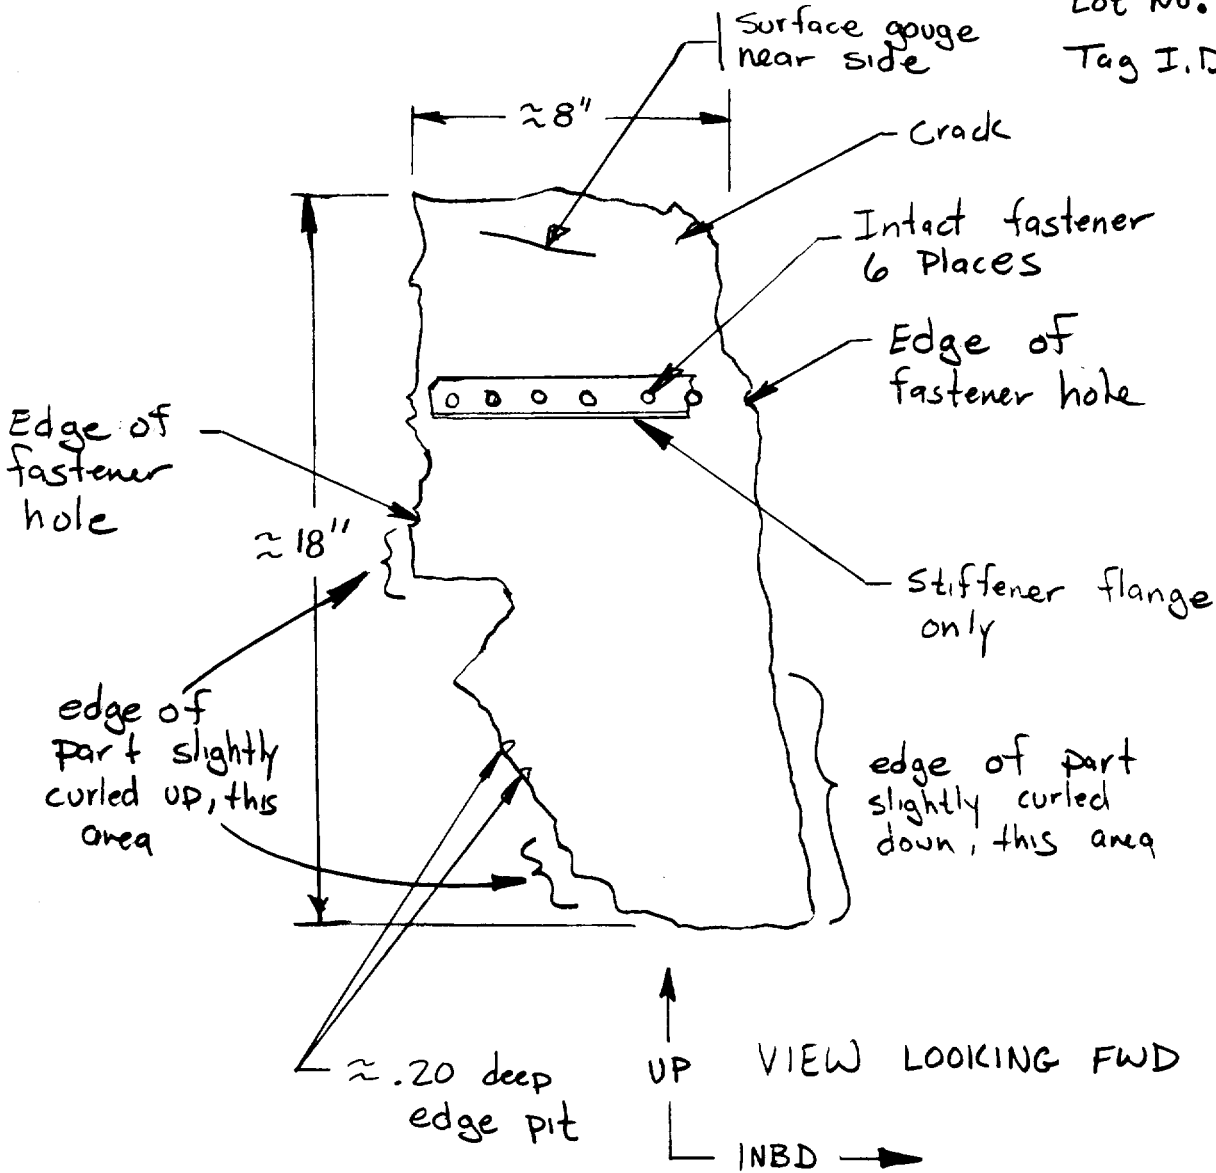 Lot No.
Tag I.D
Surface gouge
near side
≈8"
Crack
Intact fastener
6 Places
Edge of
fastener hole
Edge of
fastener
hole
≈18"
Stiffener flange
only
edge of
part slightly
curled up, this
area
edge of part
slightly curled
down, this area
≈ .20 deep
edge pit
UP
VIEW LOOKING FWD
INBD